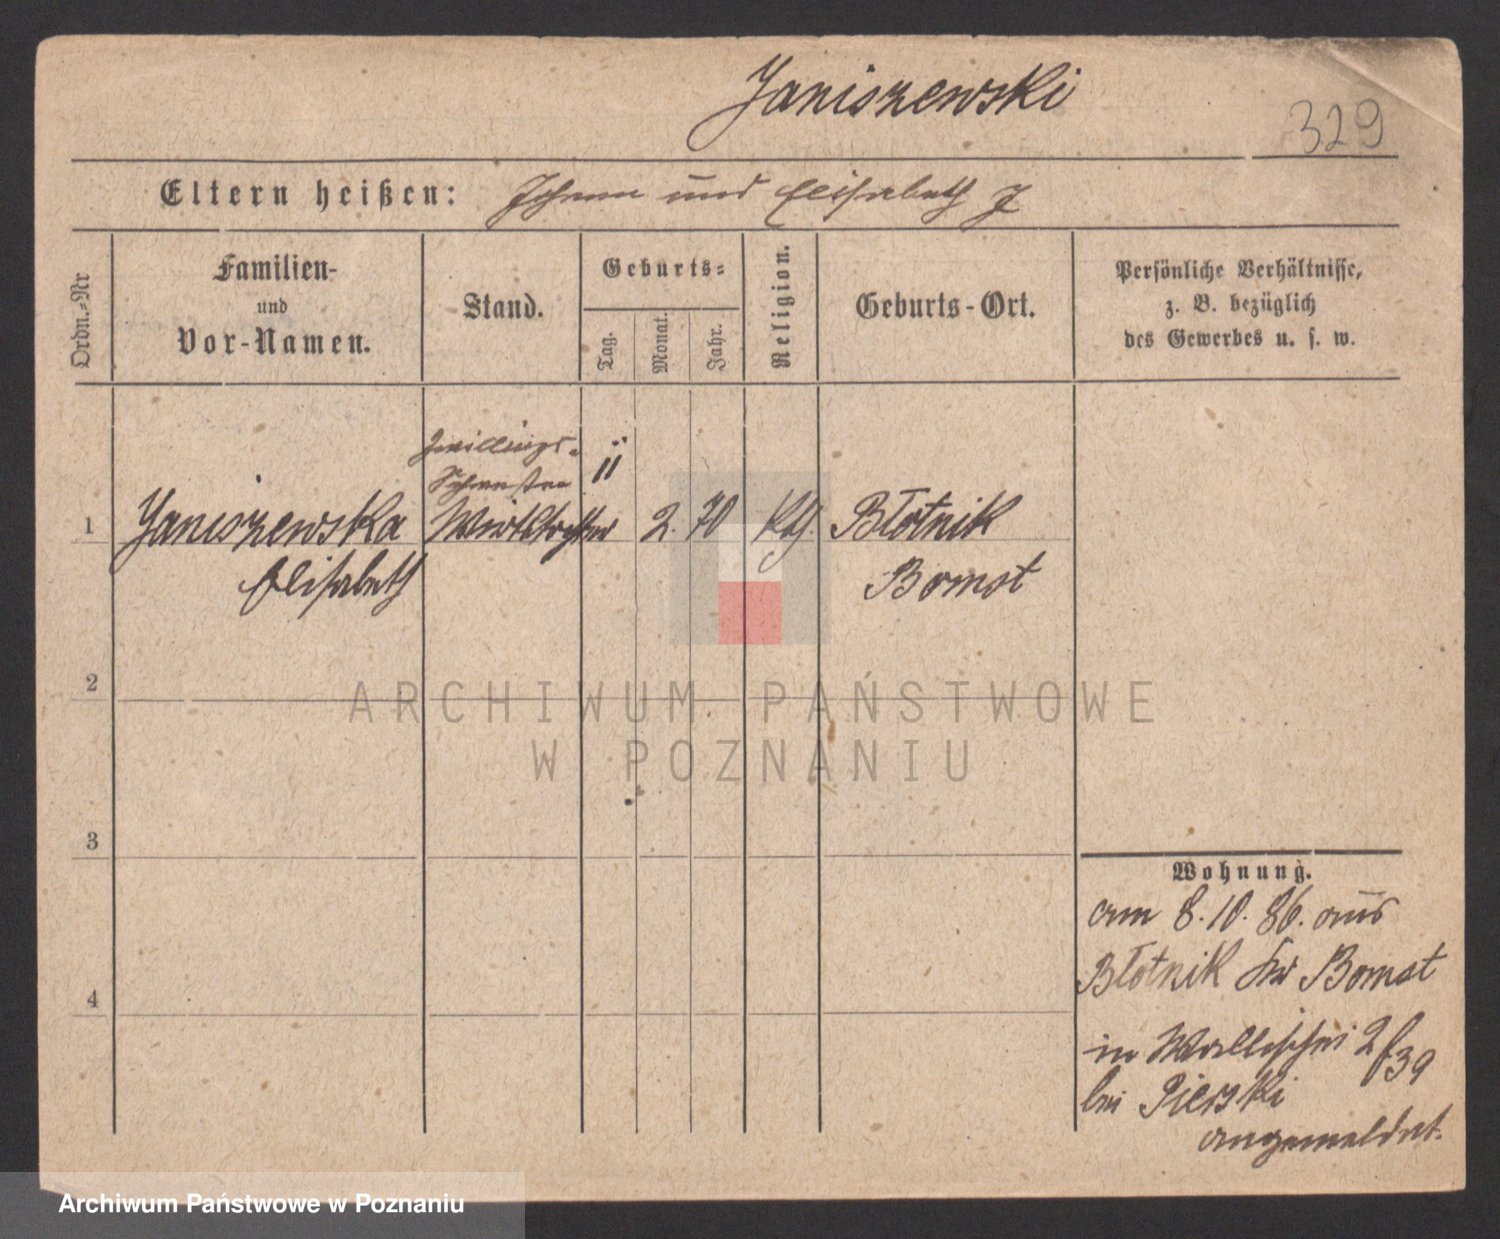 Janiszewski
329
Eltern heißen: Johann und Elisabeth J
Ordn.-Nr
Familien-
und
Vor-Namen.
Stand.
Geburts-
Tag.
Monat.
Jahr.
Religion.
Geburts-Ort.
Persönliche Verhältnisse,
z. B. bezüglich
des Gewerbes u. s. w.
Zwillings-
Schwester
1 Janiszewska 11 2. 70 Kth. Błotnik
Elisabeth Bomst
2
ARCHIWUM PAŃSTWOWE
W POZNANIU
3
4
Wohnung.
am 8.10.86. aus
Błotnik Kr Bomst
in Wallischei 2/39
bei Pierski
angemeldet.
Archiwum Państwowe w Poznaniu